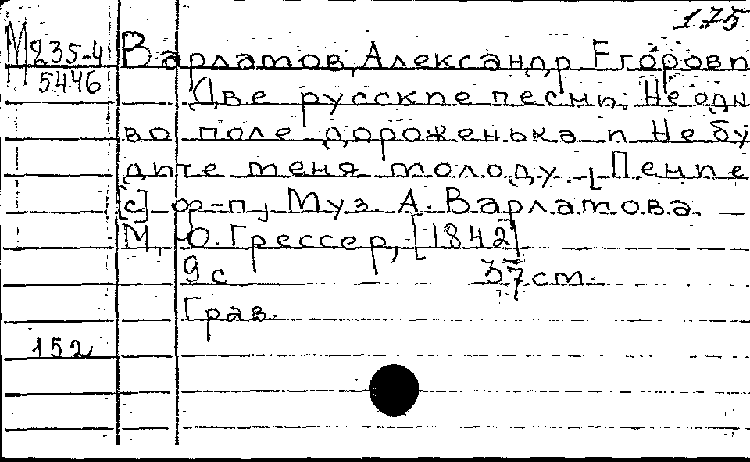 175
М 235-4
5446
Варламов, Александр Егорови
Две русские песни. Не одн
во поле дороженька и Не бу
дите меня молоду. [Пение
[с] ф-п, Муз. А. Варламова. –
М., Ю. Грессер, [1842]
9 с 37 см.
Грав.
152